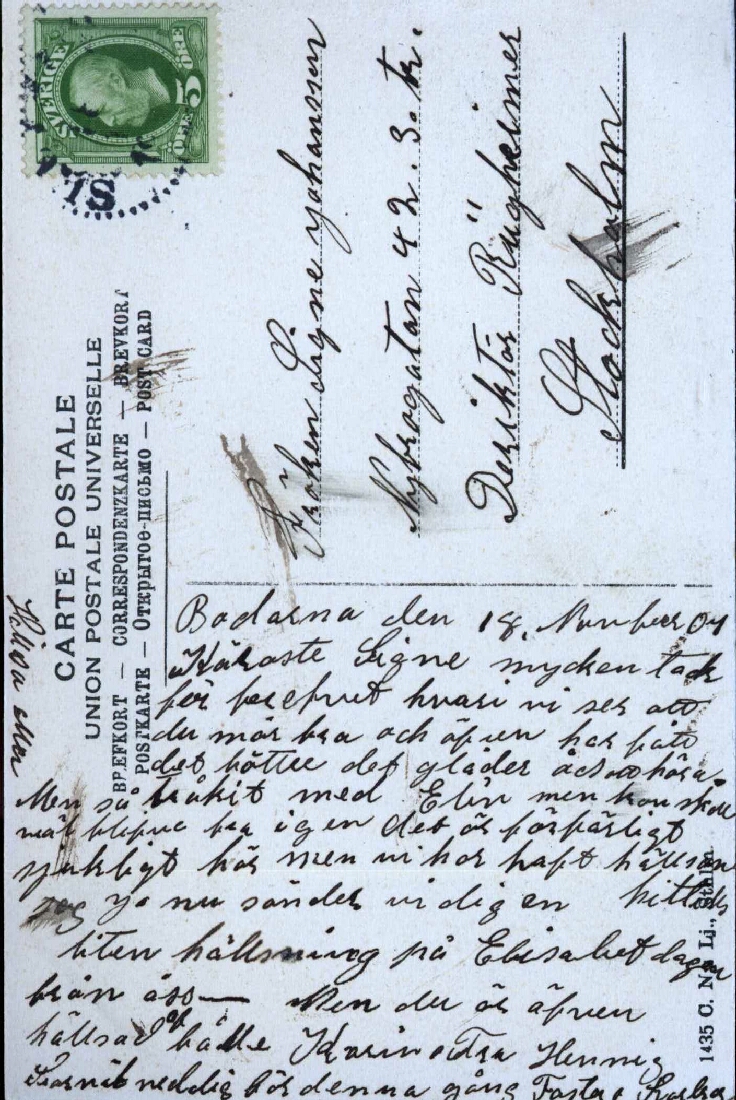 SVERIGE
5
ÖRE
CARTE POSTALE
UNION POSTALE UNIVERSELLE
BREFKORT — CORRESPONDENZKARTE — BREVKORT
POSTKARTE — Открытое-письмо — POST CARD
Fröken Signe Johansson
Nybrogatan 42. 3. tr.
Deriktör Rügheimer
Stockholm
Bodarna den 18. November 04
Käraste Signe mycken tack
för brefvet hvari vi ser att
du mår bra och äfven har fått
det bättre det gläder åss att höra.
Men så tråkit med Elin men hon skall
väl blifva bra igen det är förfärligt
sjukligt här men vi har haft hällsan
jo nu sänder vi dig en
liten hällsning på Elisabetdagen
från åss — Men du är äfven
hällsad af både Karin Hennig
dig för denna gång Faster
Hälsa
1435 C. N:s Lj., Sthlm